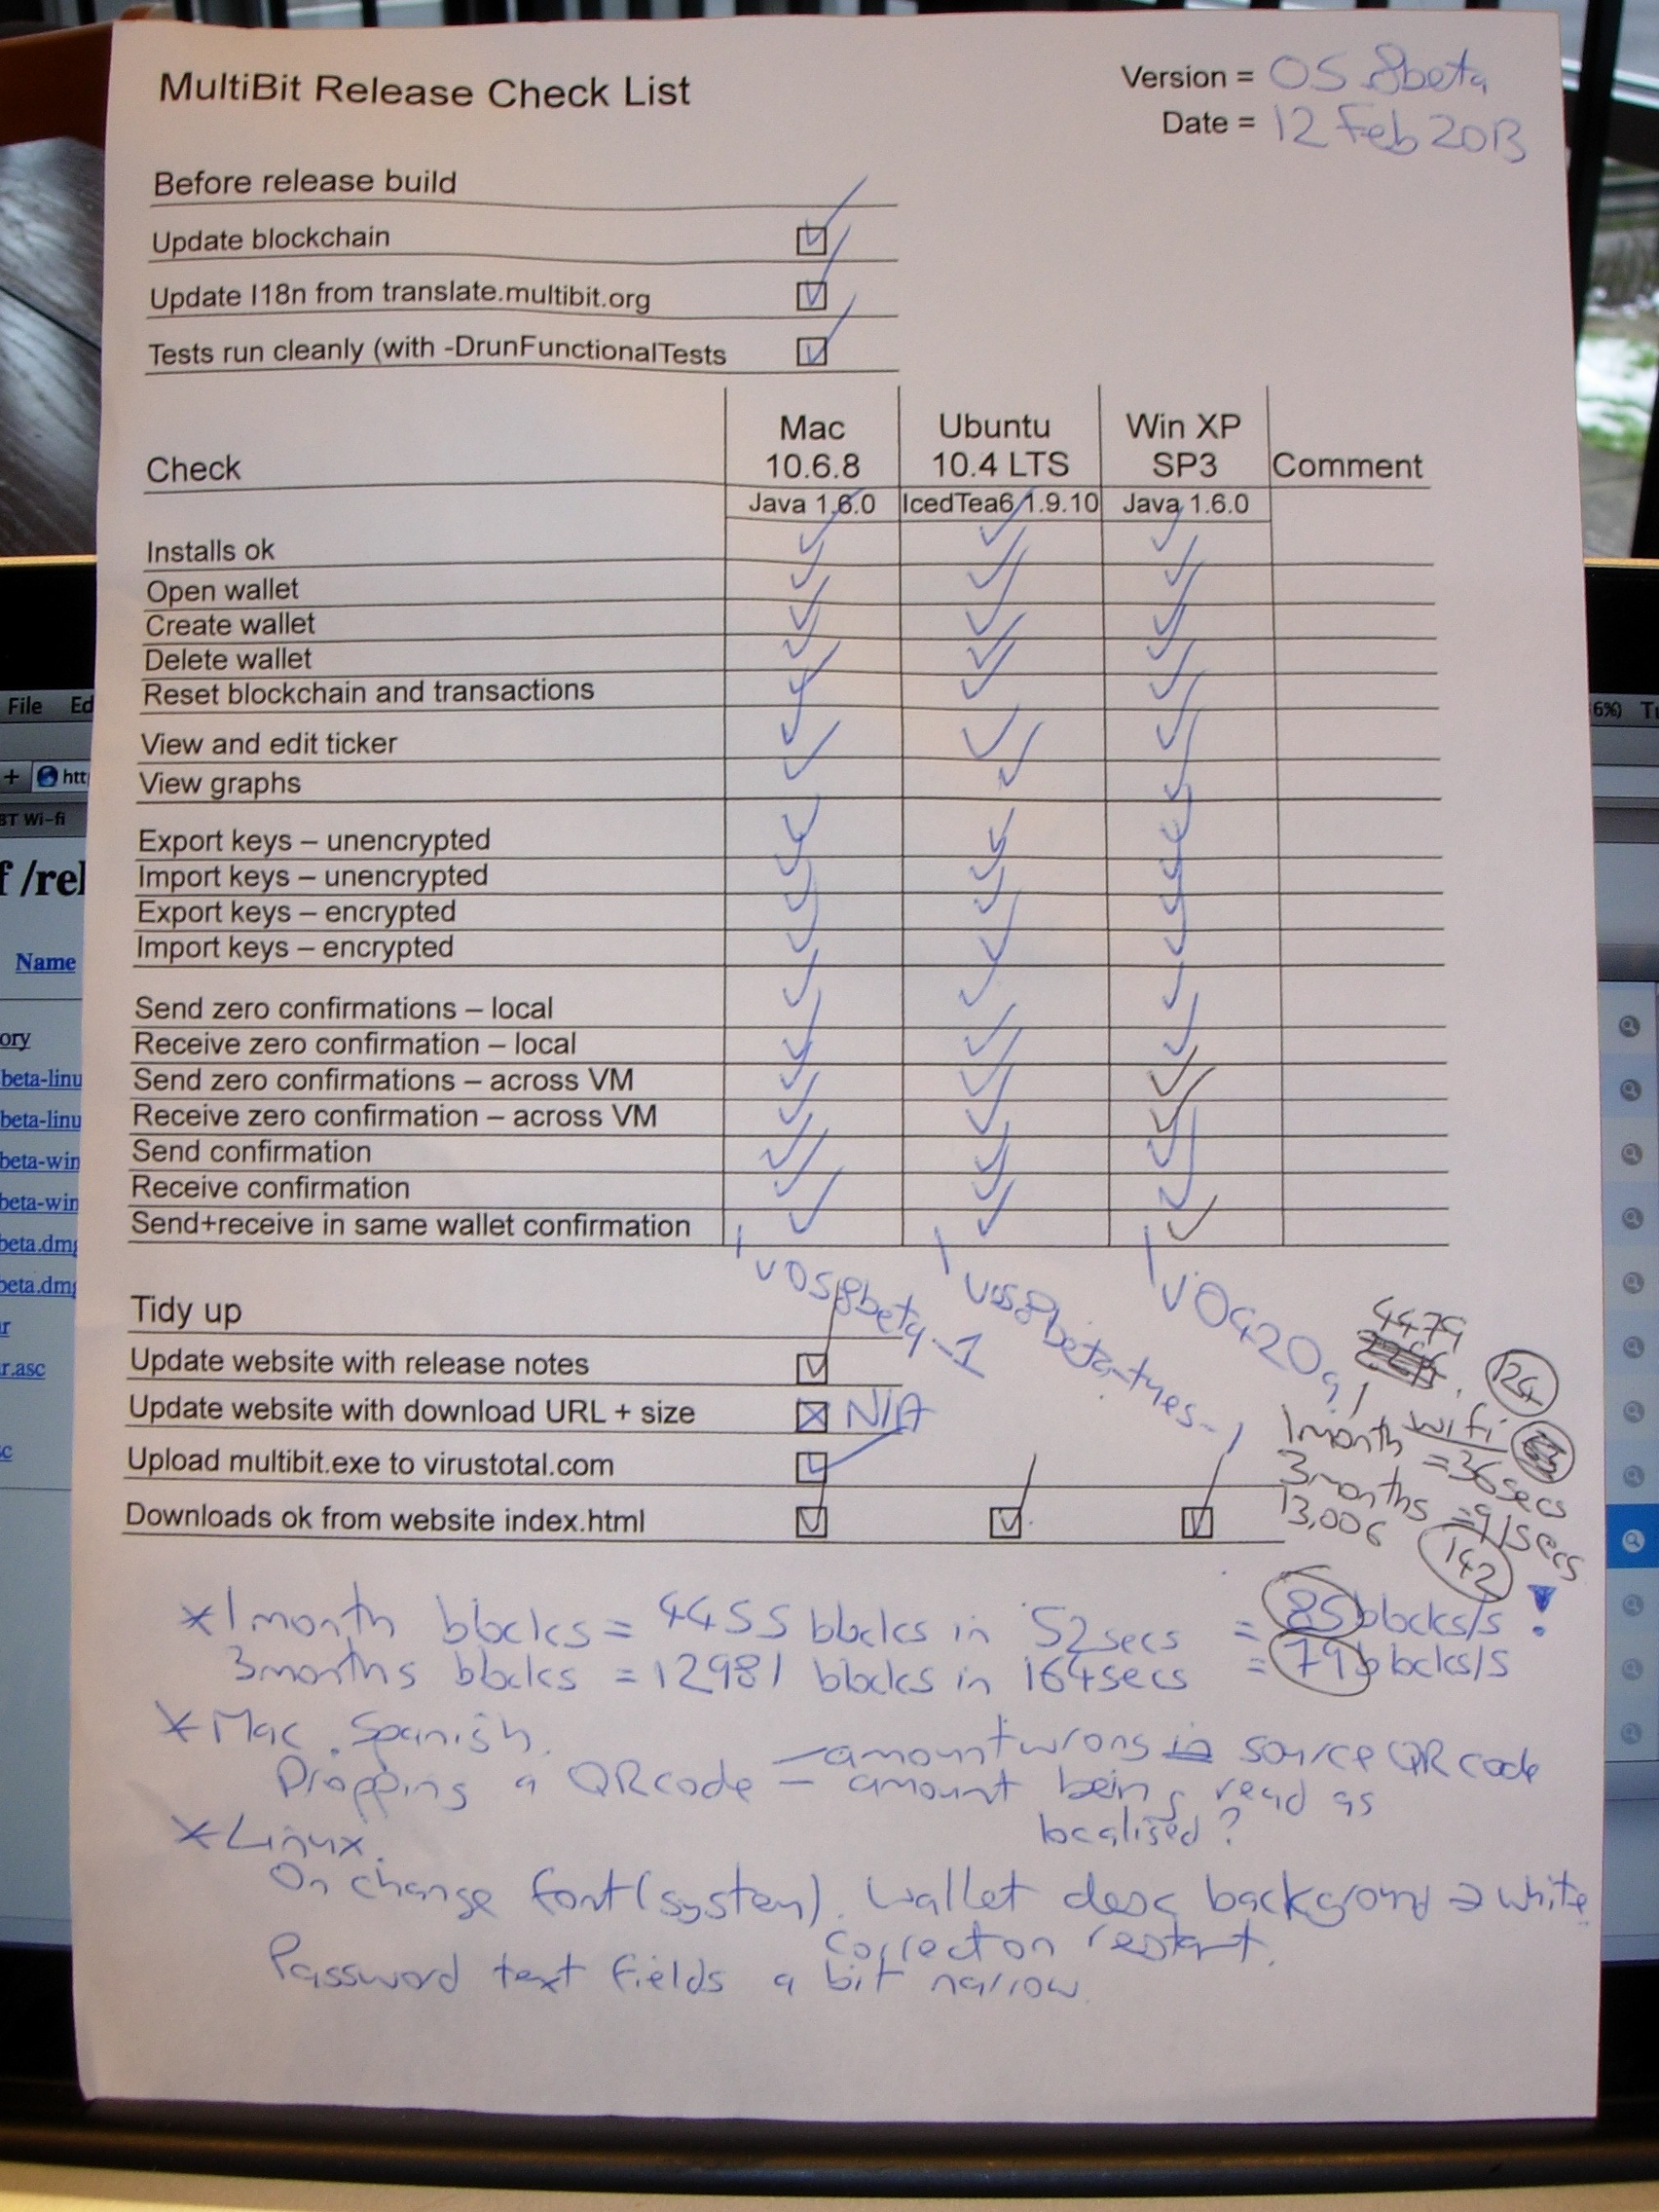 MultiBit Release Check List
Version = 0S 8beta
Date = 12 Feb 2013
Before release build
Update blockchain
Update I18n from translate.multibit.org
Tests run cleanly (with -DrunFunctionalTests
Check
Mac 10.6.8
Ubuntu 10.4 LTS
Win XP SP3
Comment
Java 1.6.0
IcedTea6 1.9.10
Java 1.6.0
Installs ok
Open wallet
Create wallet
Delete wallet
Reset blockchain and transactions
View and edit ticker
View graphs
Export keys – unencrypted
Import keys – unencrypted
Export keys – encrypted
Import keys – encrypted
Send zero confirmations – local
Receive zero confirmation – local
Send zero confirmations – across VM
Receive zero confirmation – across VM
Send confirmation
Receive confirmation
Send+receive in same wallet confirmation
Tidy up
Update website with release notes
Update website with download URL + size
N/A
Upload multibit.exe to virustotal.com
Downloads ok from website index.html
4479
124
wifi
1month = 36secs
3months = 91secs
13,006
142
*1month blocks = 4455 blocks in 52secs = 85blocks/s !
3months blocks = 12981 blocks in 164secs = 79blocks/s
*Mac Spanish.
Dropping a QRcode – amount wrong in source QR code
– amount being read as
localised?
*Linux.
On change font(system). Wallet desc background → white
Correct on restart.
Password text fields a bit narrow.
File
Ed
htt
BT Wi-fi
f /rel
Name
ory
beta-linu
beta-linu
beta-win
beta-win
beta.dmg
beta.dmg
r
r.asc
c
6%)